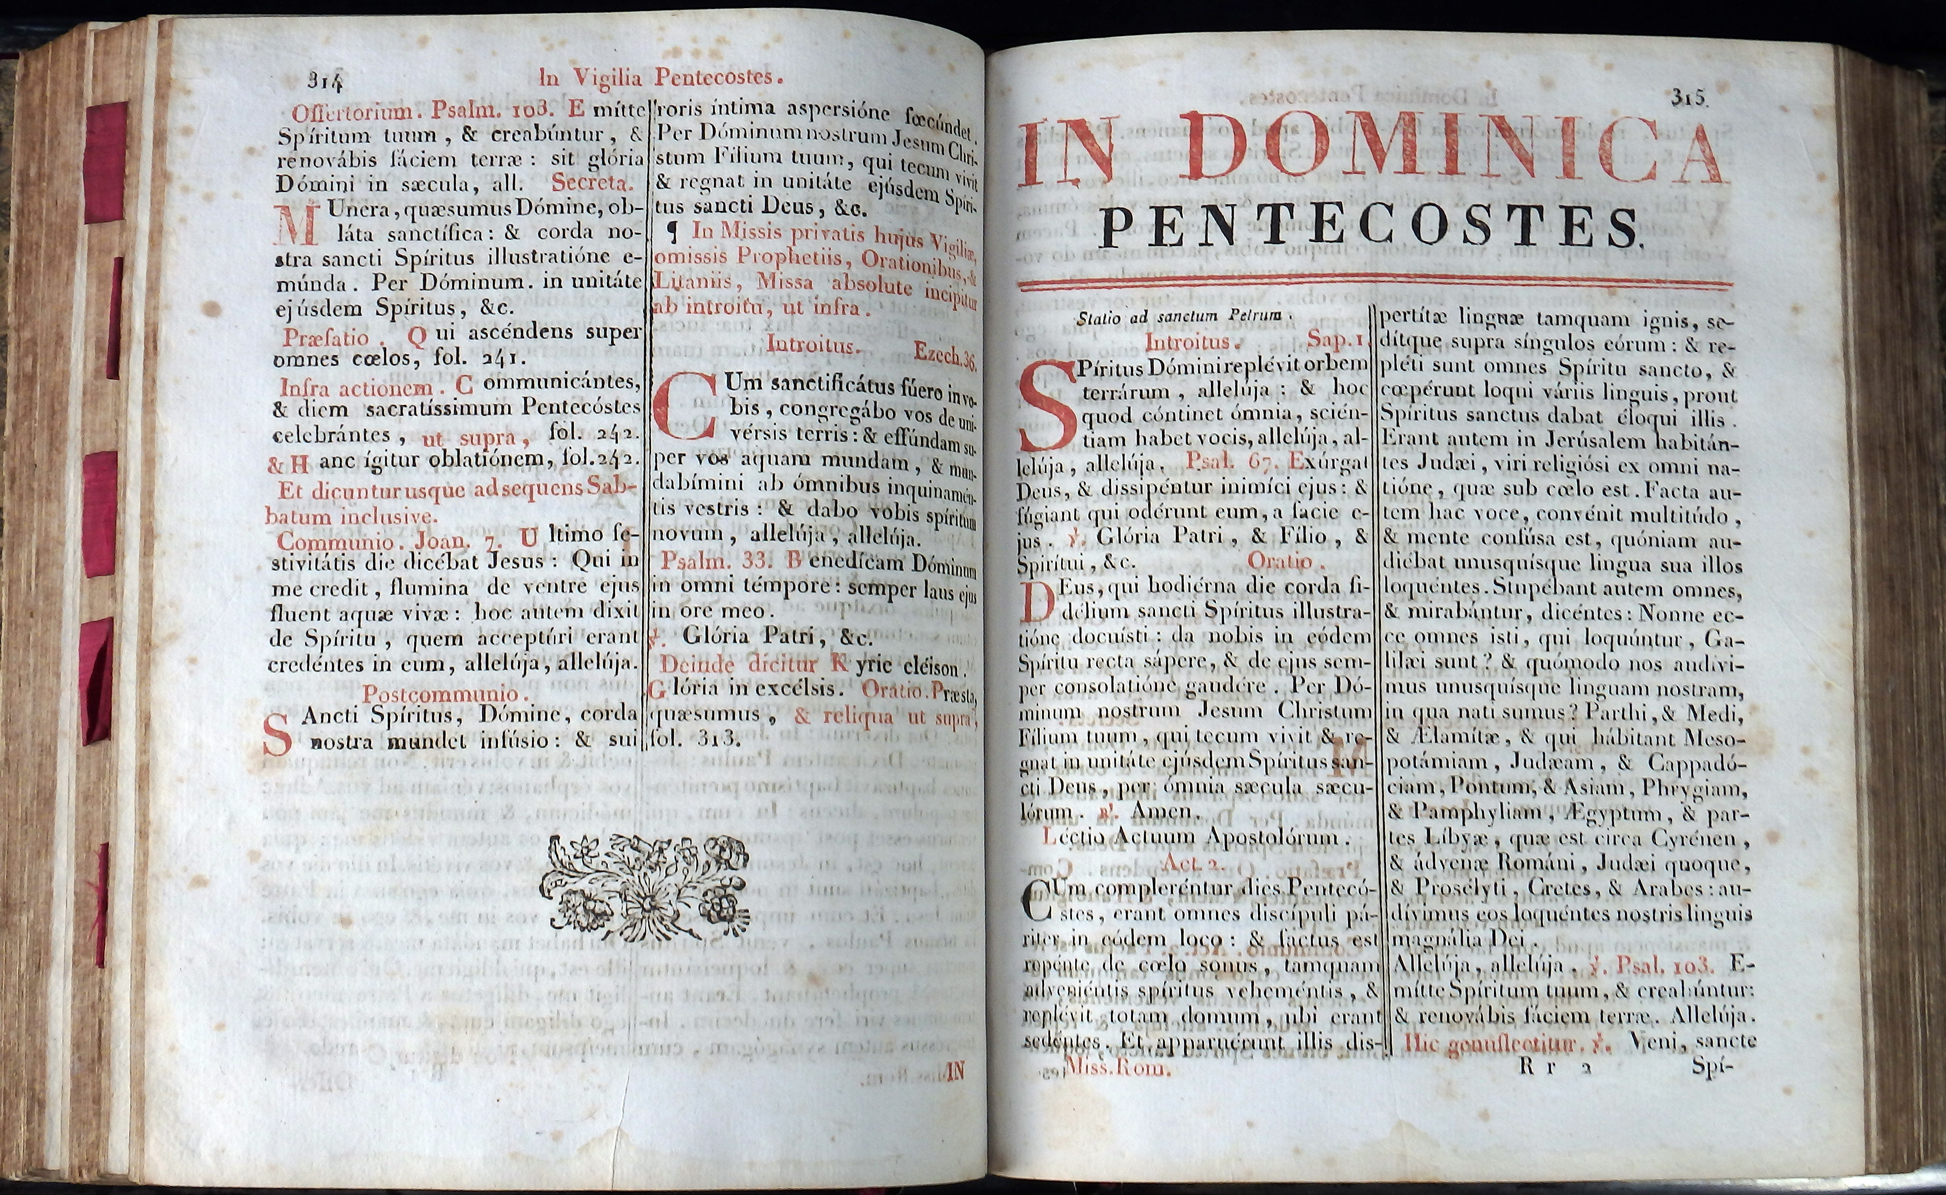 314
In Vigilia Pentecostes.
Offertorium. Psalm. 103. E mítte
Spíritum tuum, & creabúntur, &
renovábis fáciem terræ: sit glória
Dómini in sæcula, all. Secreta.
MUnera, quæsumus Dómine, ob-
láta sanctífica: & corda no-
stra sancti Spíritus illustratióne e-
múnda. Per Dóminum. in unitáte
ejúsdem Spíritus, &c.
Præfatio. Q ui ascéndens super
omnes cœlos, fol. 241.
Infra actionem. C ommunicántes,
& diem sacratíssimum Pentecóstes
celebrántes, ut supra, fol. 242.
& H anc ígitur oblatiónem, fol. 242.
Et dicuntur usque ad sequens Sab-
batum inclusive.
Communio. Joan. 7. U ltimo fe-
stivitátis die dicébat Jesus: Qui in
me credit, flumina de ventre ejus
fluent aquæ vivæ: hoc autem dixit
de Spíritu, quem acceptúri erant
credéntes in eum, allelúja, allelúja.
Postcommunio.
SAncti Spíritus, Dómine, corda
nostra mundet infúsio: & sui
roris íntima aspersióne fœcúndet.
Per Dóminum nostrum Jesum Chri-
stum Fílium tuum, qui tecum vivit
& regnat in unitáte ejúsdem Spíri-
tus sancti Deus, &c.
¶ In Missis privatis hujus Vigiliæ,
omissis Prophetiis, Orationibus, &
Litaniis, Missa absolute incipitur
ab introitu, ut infra.
Introitus. Ezech. 36.
CUm sanctificátus fúero in vo-
bis, congregábo vos de uni-
vérsis terris: & effúndam su-
per vos aquam mundam, & mun-
dabímini ab ómnibus inquinamén-
tis vestris: & dabo vobis spíritum
novum, allelúja, allelúja.
Psalm. 33. B enedícam Dóminum
in omni témpore: semper laus ejus
in ore meo.
℣. Glória Patri, &c.
Deinde dicitur K yrie eléison.
Glória in excélsis. Oratio. Præsta,
quæsumus, & reliqua ut supra,
fol. 313.
IN
315
IN DOMINICA
PENTECOSTES.
Statio ad sanctum Petrum.
Introitus. Sap. 1.
SPíritus Dómini replévit orbem
terrárum, allelúja: & hoc
quod cóntinet ómnia, scién-
tiam habet vocis, allelúja, al-
lelúja, allelúja. Psal. 67. Exúrgat
Deus, & dissipéntur inimíci ejus: &
fúgiant qui odérunt eum, a facie e-
jus. ℣. Glória Patri, & Fílio, &
Spirítui, &c. Oratio.
DEus, qui hodiérna die corda fi-
délium sancti Spíritus illustra-
tióne docuísti: da nobis in eódem
Spíritu recta sápere, & de ejus sem-
per consolatióne gaudére. Per Dó-
minum nostrum Jesum Christum
Fílium tuum, qui tecum vivit & re-
gnat in unitáte ejúsdem Spíritus san-
cti Deus, per ómnia sæcula sæcu-
lórum. ℟. Amen.
Léctio Actuum Apostolórum.
Act. 2.
CUm compleréntur dies Pentecó-
stes, erant omnes discípuli pá-
riter in eódem loco: & factus est
repénte de cœlo sonus, tamquam
adveniéntis spíritus veheméntis, &
replévit totam domum, ubi erant
sedéntes. Et apparuérunt illis dis-
Miss. Rom.
pertítæ linguæ tamquam ignis, se-
dítque supra síngulos eórum: & re-
pléti sunt omnes Spíritu sancto, &
cœpérunt loqui váriis linguis, prout
Spíritus sanctus dabat éloqui illis.
Erant autem in Jerúsalem habitán-
tes Judæi, viri religiósi ex omni na-
tióne, quæ sub cœlo est. Facta au-
tem hac voce, convénit multitúdo,
& mente confúsa est, quóniam au-
diébat unusquísque lingua sua illos
loquéntes. Stupébant autem omnes,
& mirabántur, dicéntes: Nonne ec-
ce omnes isti, qui loquúntur, Ga-
lilæi sunt? & quómodo nos audívi-
mus unusquísque linguam nostram,
in qua nati sumus? Parthi, & Medi,
& Ælamítæ, & qui hábitant Meso-
potámiam, Judæam, & Cappadó-
ciam, Pontum, & Asiam, Phrygiam,
& Pamphyliam, Ægyptum, & par-
tes Líbyæ, quæ est circa Cyrénen,
& ádvenæ Románi, Judæi quoque,
& Prosélyti, Cretes, & Arabes: au-
dívimus eos loquéntes nostris linguis
magnália Dei.
Allelúja, allelúja, ℣. Psal. 103. E-
mítte Spíritum tuum, & creabúntur:
& renovábis fáciem terræ. Allelúja.
Hic genuflectitur. ℣. Veni, sancte
R r 2
Spí-